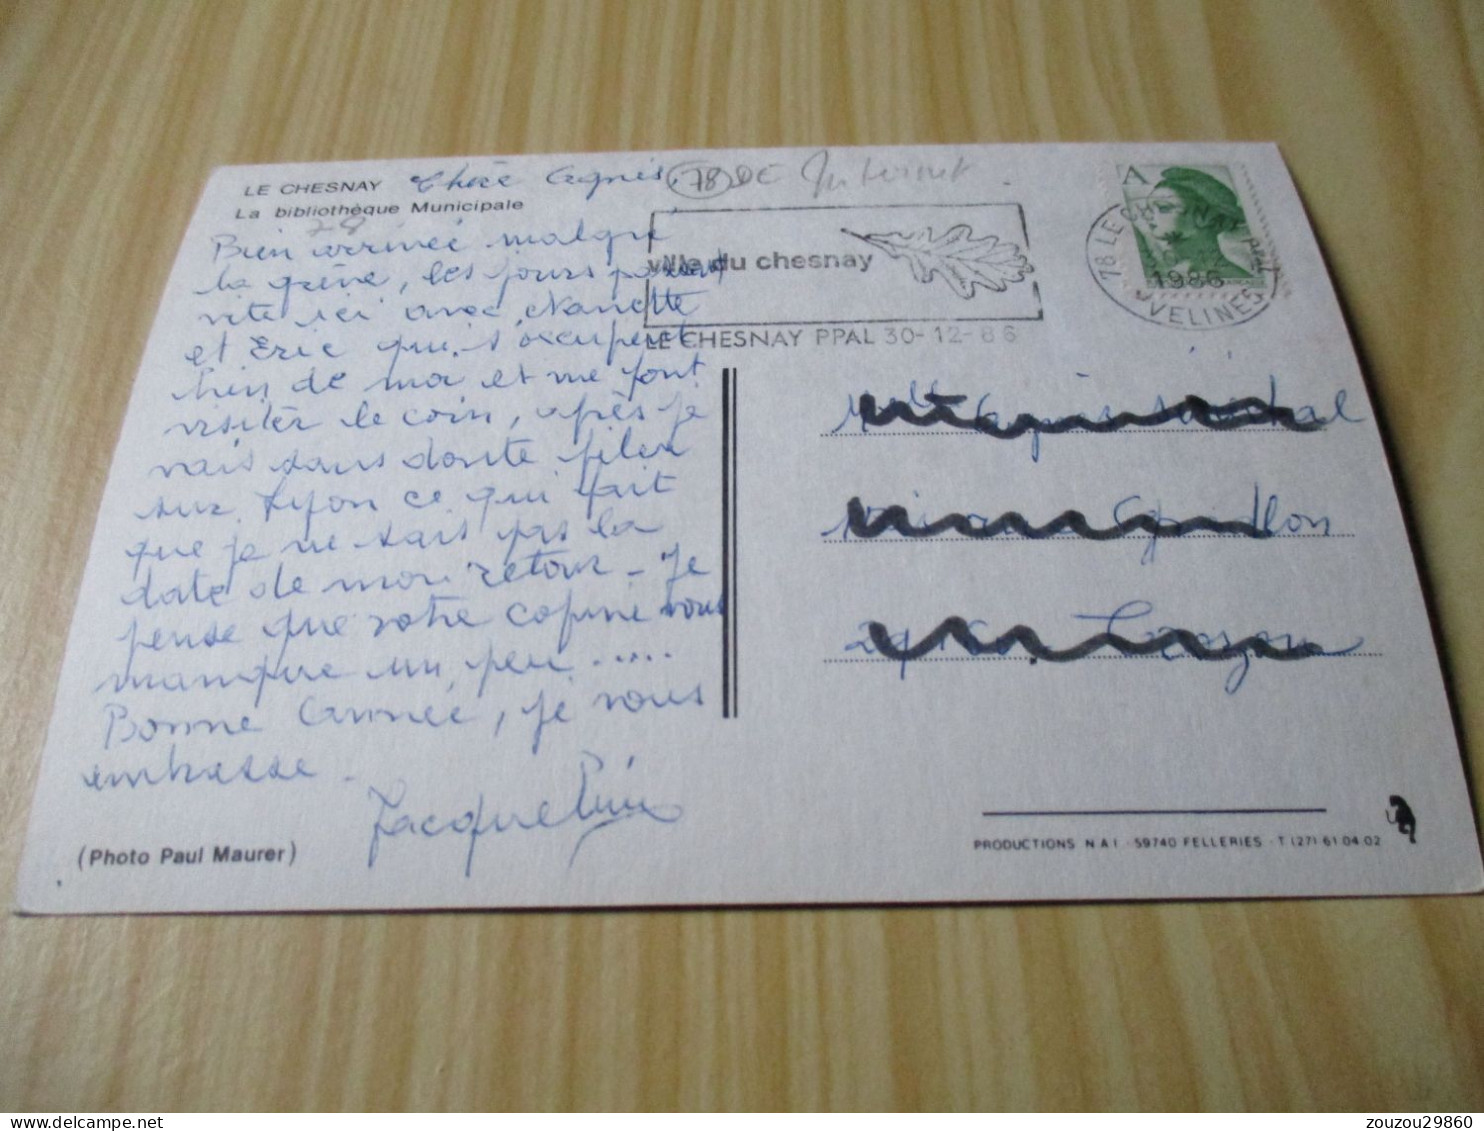 LE CHESNAY
La bibliothèque Municipale
Chère Agnès,
78 Internet
Bien arrivée malgré
la grève, les jours passent
vite ici avec Nanette
et Eric qui s'occupent
bien de moi et me font
visiter le coin, après je
vais sans doute filer
sur Lyon ce qui fait
que je ne sais pas la
date de mon retour - Je
pense que votre copine vous
manque un peu .....
Bonne Année, je vous
embrasse.
Jacqueline
(Photo Paul Maurer)
ville du chesnay
LE CHESNAY PPAL 30-12-86
A
78 LE CHESNAY PPAL
1986
YVELINES
PRODUCTIONS N A I - 59740 FELLERIES - T (27) 61 04 02
zouzou29860